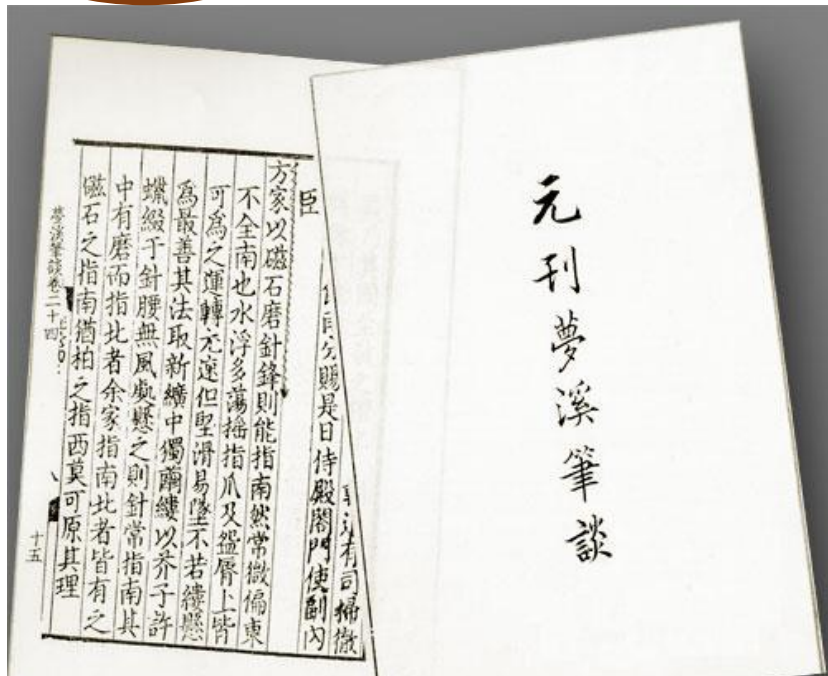 元刊夢溪筆談
有司掃徹
分賜是日侍殿閣門使副內
臣
方家以磁石磨針鋒則能指南然常微偏東
不全南也水浮多蕩搖指爪及盌脣上皆
可爲之運轉尤速但堅滑易墜不若縷懸
爲最善其法取新纊中獨繭縷以芥子許
蠟綴于針腰無風處懸之則針常指南其
中有磨而指北者余家指南北者皆有之
磁石之指南猶柏之指西莫可原其理
夢溪筆談卷二十四
十五